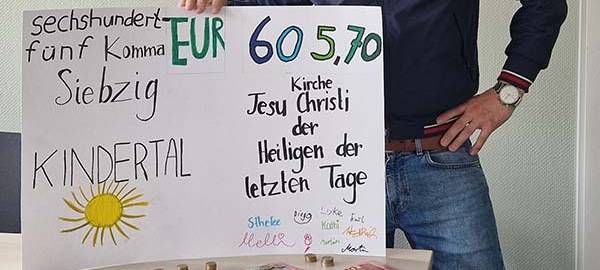 sechshundert
fünf Komma
Siebzig
EUR 605,70
KINDERTAL
Kirche
Jesu Christi
der
Heiligen der
letzten Tage
Luke
Kathi
Melli
Martin